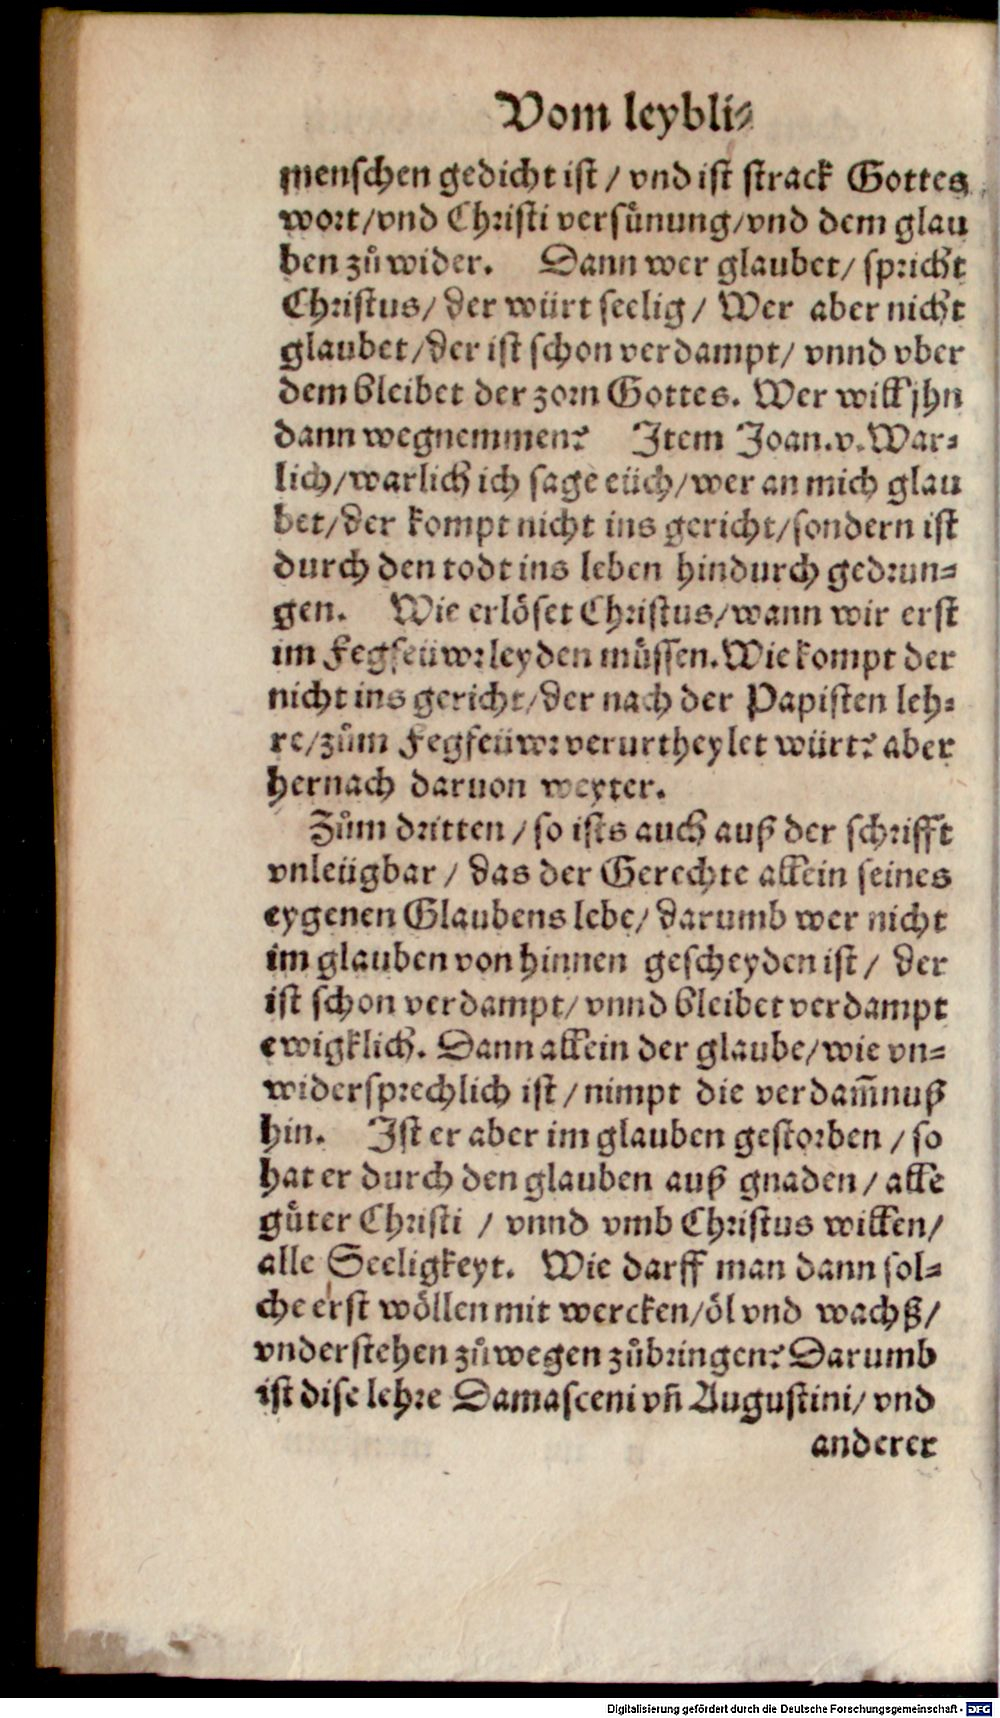 Vom leybli⸗
menschen gedicht ist / vnd ist strack Gottes
wort/vnd Christi versünung/vnd dem glau
ben zůwider. Dann wer glaubet/ spricht
Christus/ der würt seelig / Wer aber nicht
glaubet/der ist schon verdampt/ vnnd vber
dem bleibet der zorn Gottes. Wer will jhn
dann wegnemmen? Item Joan.v. War⸗
lich/warlich ich sage eüch/wer an mich glau
bet/der kompt nicht ins gericht/sondern ist
durch den todt ins leben hindurch gedrun⸗
gen. Wie erlöset Christus/wann wir erst
im Fegfeüwr leyden müssen. Wie kompt der
nicht ins gericht/der nach der Papisten leh⸗
re/zům Fegfeüwr verurtheylet würt? aber
hernach daruon weyter.
Zům dritten / so ists auch auß der schrifft
vnleügbar / das der Gerechte allein seines
eygenen Glaubens lebe/ darumb wer nicht
im glauben von hinnen gescheyden ist / der
ist schon verdampt/ vnnd bleibet verdampt
ewigklich. Dann allein der glaube/wie vn⸗
widersprechlich ist / nimpt die verdam̄nuß
hin. Ist er aber im glauben gestorben / so
hat er durch den glauben auß gnaden / alle
güter Christi / vnnd vmb Christus willen/
alle Seeligkeyt. Wie darff man dann sol⸗
che erst wöllen mit wercken/öl vnd wachß/
vnderstehen zůwegen zůbringen? Darumb
ist dise lehre Damasceni vñ Augustini/ vnd
anderer
Digitalisierung gefördert durch die Deutsche Forschungsgemeinschaft - DFG